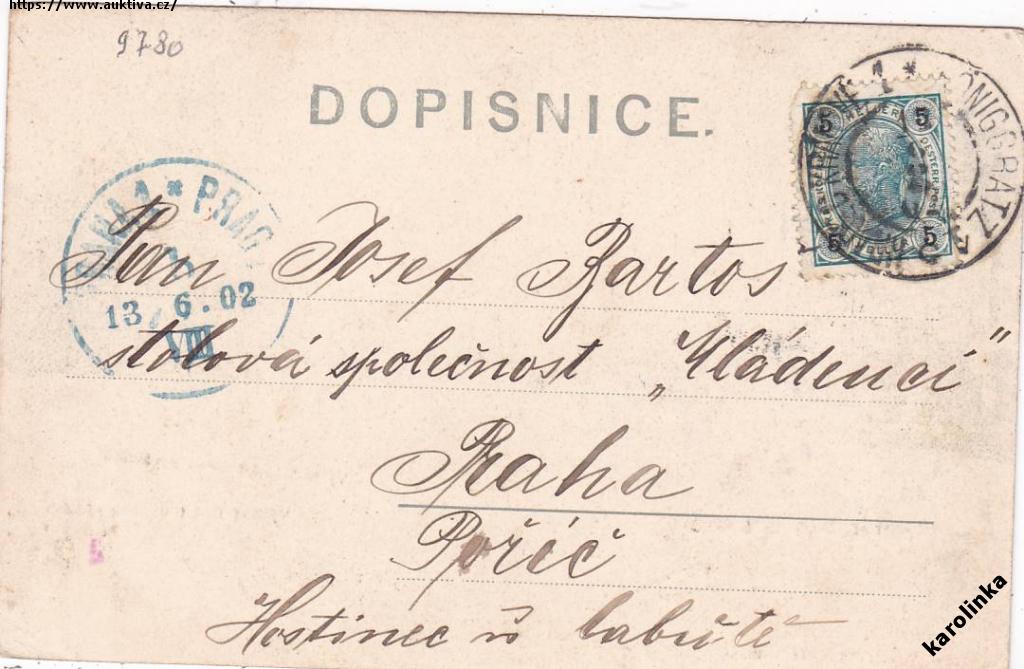 https://www.auktiva.cz/
9780
DOPISNICE.
KÖNIGGRÄTZ
5 HELLER 5
5 5
PRAHA 1 * PRAG
13/6.02
VIII
Pan Josef Bartos
stolová společnost „Mládenci“
Praha
Poříč
Hostinec u labutě
karolinka